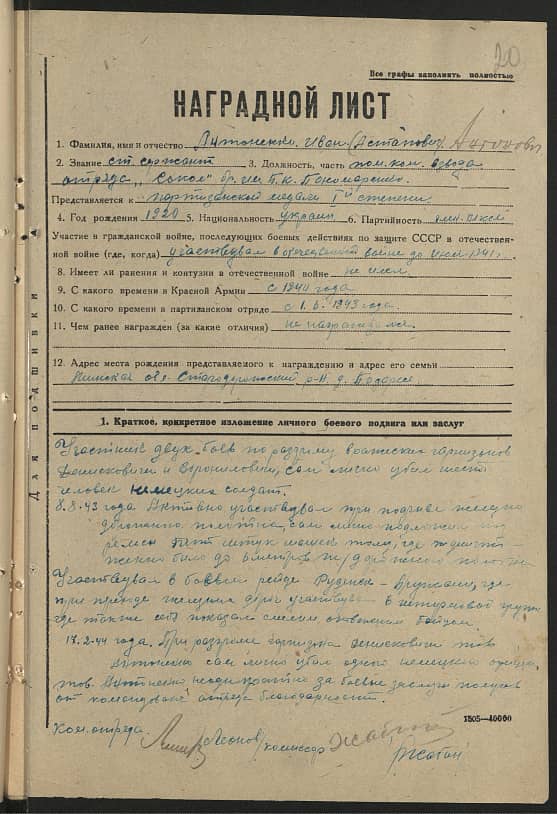 20
Все графы заполнять полностью
НАГРАДНОЙ ЛИСТ
1. Фамилия, имя и отчество Антоненко Иван
2. Звание ст. сержант 3. Должность, часть пом. ком. взвода
отряда „Сокол" бр. им. П.К. Пономаренко
Представляется к партизанской медали I степени
4. Год рождения 1920 5. Национальность украин 6. Партийность
Участие в гражданской войне, последующих боевых действиях по защите СССР и отечествен-
ной войне (где, когда) участвовал в отечественной войне до июля 1941 г.
8. Имеет ли ранения и контузии в отечественной войне не имел
9. С какого времени в Красной Армии с 1940 года
10. С какого времени в партизанском отряде с 1. 6. 1943 года.
11. Чем ранее награжден (за какие отличия) не награждался.
12. Адрес места рождения представляемого к награждению и адрес его семьи
Минская обл. Стародорожский р-н. д.
Для подшивки
1. Краткое, конкретное изложение личного боевого подвига или заслуг
Участник двух боев по разгрому вражеских гарнизонов
Денисковичи и сам лично убил шесть
человек немецких солдат.
8.8.43 года Активно участвовал при подрыве железно
дорожного полотна, сам лично подложил под
рельсы пять штук шашек толу, где
было до метров ж/дорожного полотна
Участвовал в боевом рейде Руденск - Дружаны, где
при переходе железной дороги участвовал в штурмовой группе
где также себя показал смелым отважным бойцом.
17.2.44 года. При разгроме гарнизона Денисковичи тов
Антоненко сам лично убил одного немецкого офицера
тов. Антоненко неоднократно за боевые заслуги получал
от командования отряда благодарности.
1505—40000
Ком. отряда Леонов комиссар